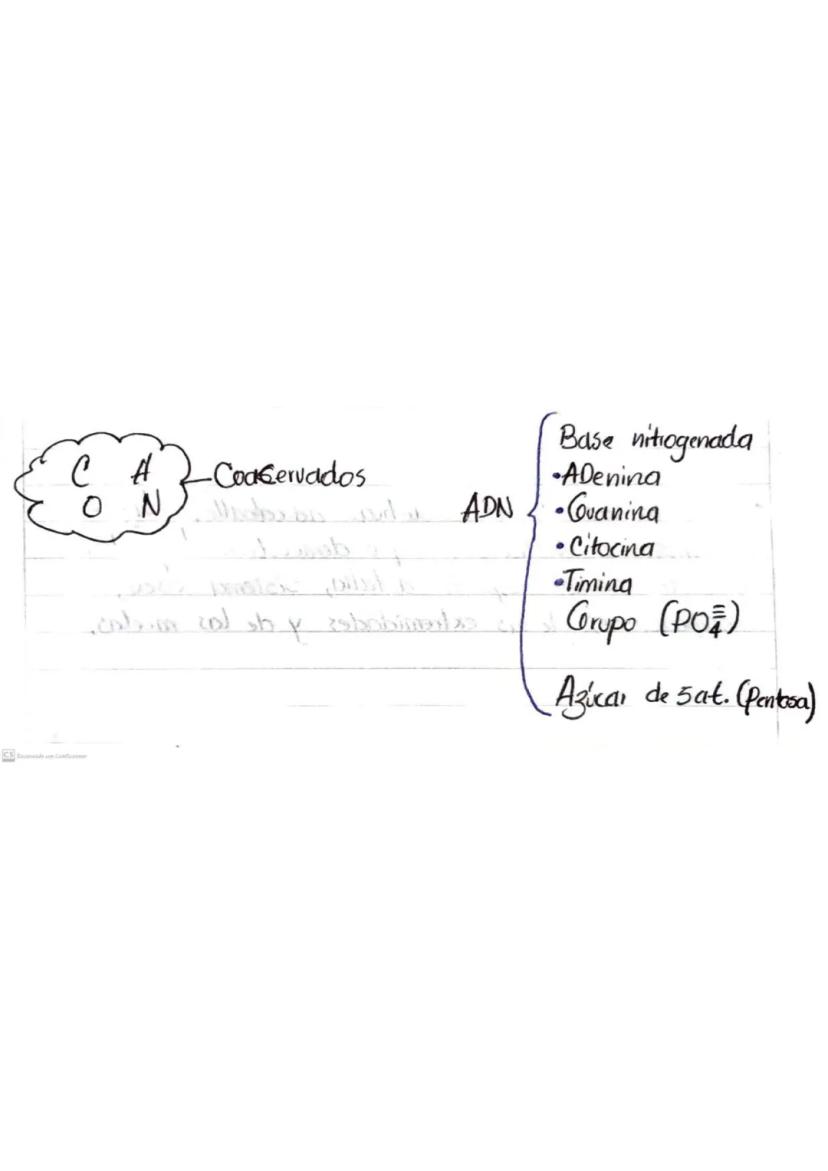 C H
O N
Coacervados
ADN
Base nitrogenada
•ADenina
•Guanina
•Citocina
•Timina
Grupo (PO₄≡)
Azúcar de 5 at. (Pentosa)
extremidades y de las
CS Escaneado con CamScanner